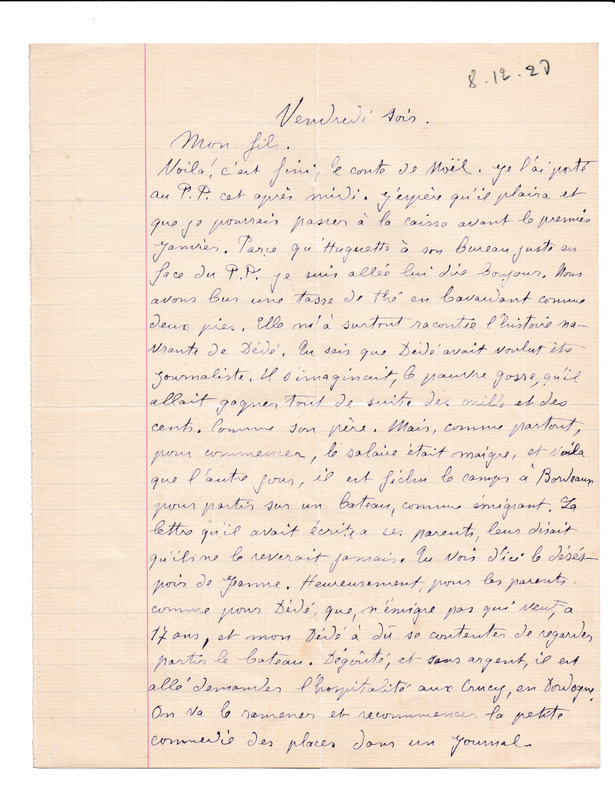 8.12.20
Vendredi soir.
Mon fils.
Voilà, c'est fini, le conte de Noël. je l'ai porté
au P.P. cet après midi. j'espère qu'il plaira et
que je pourrais passer à la caisse avant le premier
Janvier. Parce qu'Huguette à son bureau juste en
face du P.P. je suis allée lui dire bonjour. Nous
avons bus une tasse de thé en bavardant comme
deux pies. Elle m'à surtout racontée l'histoire na-
vrante de Dédé. Tu sais que Dédé avait voulut être
journaliste. Il s'imaginait, le pauvre gosse, qu'il
allait gagner tout de suite des mille et des
cents. Comme son père. Mais, comme partout,
pour commencer, le salaire était maigre, et voila
que l'autre jour, il est fichu le camps à Bordeaux
pour partir sur un bateau, comme émigrant. La
lettre qu'il avait écrite a ses parents, leur disait
qu'ils ne le reverait jamais. Tu vois d'ici le déses-
poir de Jeanne. Heureusement, pour les parents
comme pour Dédé, que, n'émigre pas qui veut, a
17 ans, et mon Dédé à dû se contenter de regarder
partir le bateau. Dégoûté, et sans argent, il est
allé demander l'hospitalité aux Crucy, en Dordogne.
On va le ramener et recommencer la petite
commedie des places dans un journal.